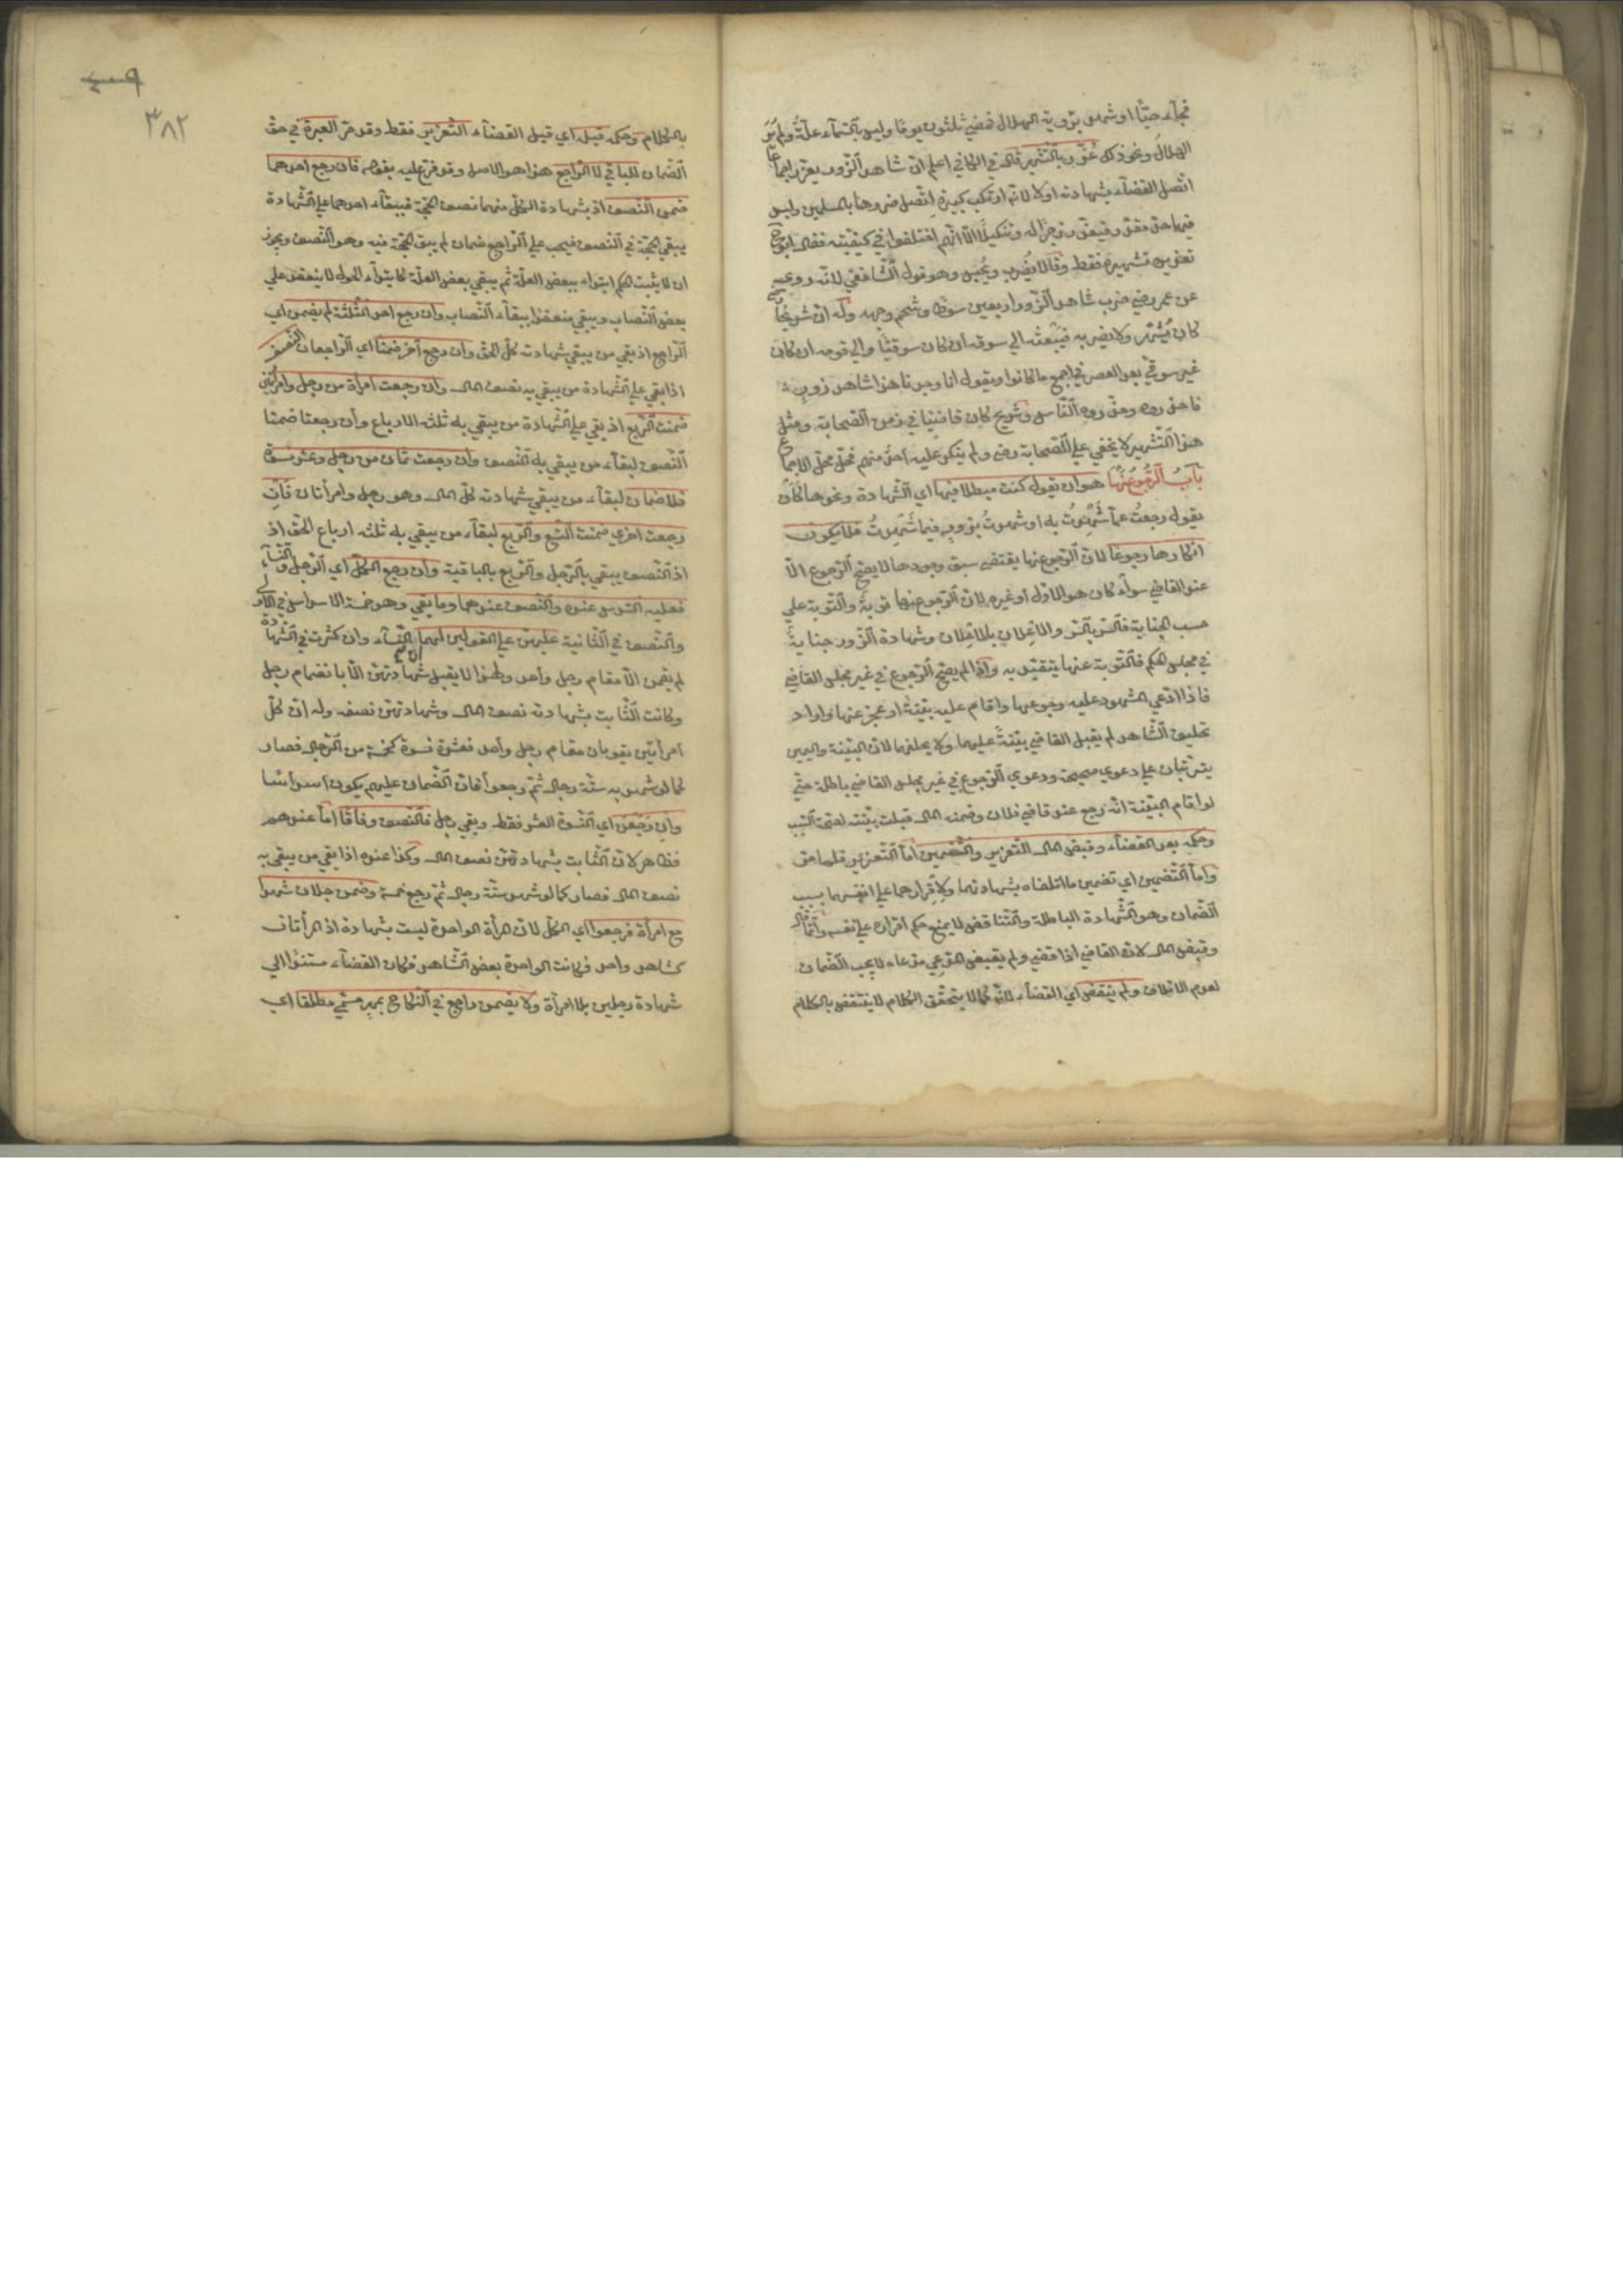 فجاء حيّا او شهد برؤية الهلال فمضي ثلثون يوما وليس بالسّماء علّة ولم ير
الهلال ونحو ذلك عزّر بالتشهير قال في الكافي اعلم ان شاهد الزّور يعزّر اجماعا
اتّصل القضاء بشهادته اولا لانه ارتكب كبيرة اتّصل ضررها بالمسلمين وليس
فيها حدّ مقدّر فيعزّر زجرا له وتنكيلا الّا انّهم اختلفوا في كيفيّته فقال ابو ح
تعزيره تشهيره فقط وقالا يضرب ويحبس وهو قول الشّافعي لانّه روي
عن عمر رضي ضرب شاهد الزّور اربعين سوطا وسخّم وجهه وله انّ شريحا
كان يشهّر ولا يضربه فيبعثه الي سوقه ان كان سوقيّا والي قومه ان كان
غير سوقيّ بعد العصر في اجمع ما كانوا ويقول انا وجدنا هذا شاهد زور
فاحذروه وحذّروه النّاس وشريح كان قاضيا في زمن الصّحابة ومثل
هذا التّشهير لا يخفي علي الصّحابة رضي ولم ينكر عليه احد منهم فحلّ محلّ الاجماع
باب الرّجوع عنها هو ان يقول كنت مبطلا فيها اي الشّهادة ونحوها كان
يقول رجعت عمّا شهدت به او شهدت بزور فيما شهدت فلا يكون
انكارها رجوعا لانّ الرّجوع عنها يقتضي سبق وجودها لا يصحّ الرّجوع الّا
عند القاضي سواء كان هو الاوّل او غيره لانّ الرّجوع عنها توبة والتّوبة علي
حسب الجناية فالسّر بالسّر والاعلان بالاعلان وشهادة الزّور جناية
في مجلس الحكم فالتّوبة عنها يتقيّد به واذا لم يصحّ الرّجوع في غير مجلس القاضي
فاذا ادّعي المشهود عليه رجوعهما واقام عليه بيّنة او عجز عنها واراد
تحليف الشّاهد لم يقبل القاضي بيّنة عليهما ولا يحلفهما لانّ البيّنة واليمين
يترتّبان علي دعوي صحيحة ودعوي الرّجوع في غير مجلس القاضي باطلة حتّي
لو اقام البيّنة انّه رجع عند قاضي فلان وضمنه المال قبلت بيّنته لصحّة السّبب
وحكمه بعد القضاء وقبض المال التعزير والتّضمين امّا التّعزير فلما مرّ
وامّا التّضمين اي تضمين ما اتلفاه بشهادتهما ولاقرارهما علي انفسهما بسبب
الضّمان وهو الشّهادة الباطلة والتّناقض لا يمنع حكم اقراره علي نفسه وانّما قال
وقبض المال لانّ القاضي اذا قضي ولم يقبض المدّعي مدّعاه لا يجب الضّمان
لعدم الاتلاف ولم ينقض اي القضاء لانّه كما لا يتحقّق الكلام لا ينتقض بالكلام
٣٨٢
بالكلام وحكمه قبله اي قبل القضاء التّعزير فقط وقد مرّ العبرة في حقّ
الضّمان للباقي لا الرّاجع هذا هو الاصل وقد فرّع عليه بقوله فان رجع احدهما
ضمن النّصف اذ بشهادة الكلّ منهما نصف الحجّة فببقاء احدهما علي الشّهادة
يبقي الحجّة في النّصف فيجب علي الرّاجع ضمان لم يبق الحجّة فيه وهو النّصف ويجوز
ان لا يثبت الحكم ابتداء ببعض العلّة ثم يبقي ببعض العلّة كابتداء الحول لا ينعقد علي
بعض النّصاب ويبقي منعقدا ببقاء النّصاب وان رجع احد الثّلثة لم يضمن اي
الرّاجع اذ بقي من يبقي شهادته كلّ الحقّ وان رجع آخر ضمنا اي الرّاجعان النّصف
اذا بقي علي الشّهادة من يبقي به نصف المال وان رجعت امرأة من رجل وامرأتين
ضمنت الرّبع اذ بقي علي الشّهادة من يبقي به ثلثه الارباع وان رجعتا ضمنا
النّصف لبقاء من يبقي به النّصف وان رجعت ثمان من رجل وعشر نسوة
فلا ضمان لبقاء من يبقي شهادته كلّ المال وهو رجل وامرأتان فان
رجعت اخري ضمنت التّسع والرّبع لبقاء من يبقي به ثلثه ارباع الحقّ اذ
اذ النّصف يبقي بالرّجل والرّبع بالباقية وان رجع الكلّ اي الرّجل والنّساء
فعليه السّدس عنده والنّصف عندهما وما بقي وهو خمسة الاسداس في الاولي
والنّصف في الثّانية عليهنّ علي القولين لهما انّ النّساء وان كثرت في الشّهادة
لم يقمن الّا مقام رجل واحد ولهذا لا يقبل شهادتهنّ الّا بانضمام رجل
وكانت الثّابت بشهادته نصف المال وشهادتهنّ نصفه وله انّ كلّ
امرأتين يقومان مقام رجل واحد فعشرة نسوة كخمسة من الرّجال فصار
كما لو شهد به ستّة رجال ثمّ رجعوا فانّ الضّمان عليهم يكون اسداسا
وان رجعن اي النّسوة العشر فقط وبقي رجل فالنّصف وفاقا امّا عندهم
فظاهر لانّ الثّابت بشهادتهنّ نصف المال وكذا عنده اذا بقي من يبقي به
نصف المال فصار كما لو شهد ستّة رجال ثمّ رجع خمسة وضمن رجلان شهدا
مع امرأة فرجعوا اي الكلّ لانّ المرأة الواحدة ليست بشهادة اذ المرأتان
كشاهد واحد فكانت الواحدة بعض الشّاهد فكان القضاء مستندا الي
شهادة رجلين بلا امرأة ولا يضمن راجع في النّكاح بمهر مسمّي مطلقا اي